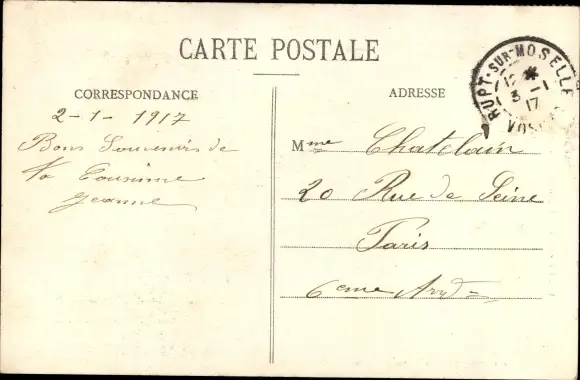 CARTE POSTALE
CORRESPONDANCE
2-1-1917
Bons Souvenirs de
ta Cousine
Jeanne
ADRESSE
Mme Chatelain
20 Rue de Seine
Paris
6eme Arrd
RUPT-SUR-MOSELLE
12 *
3 -1
17
VOSGES